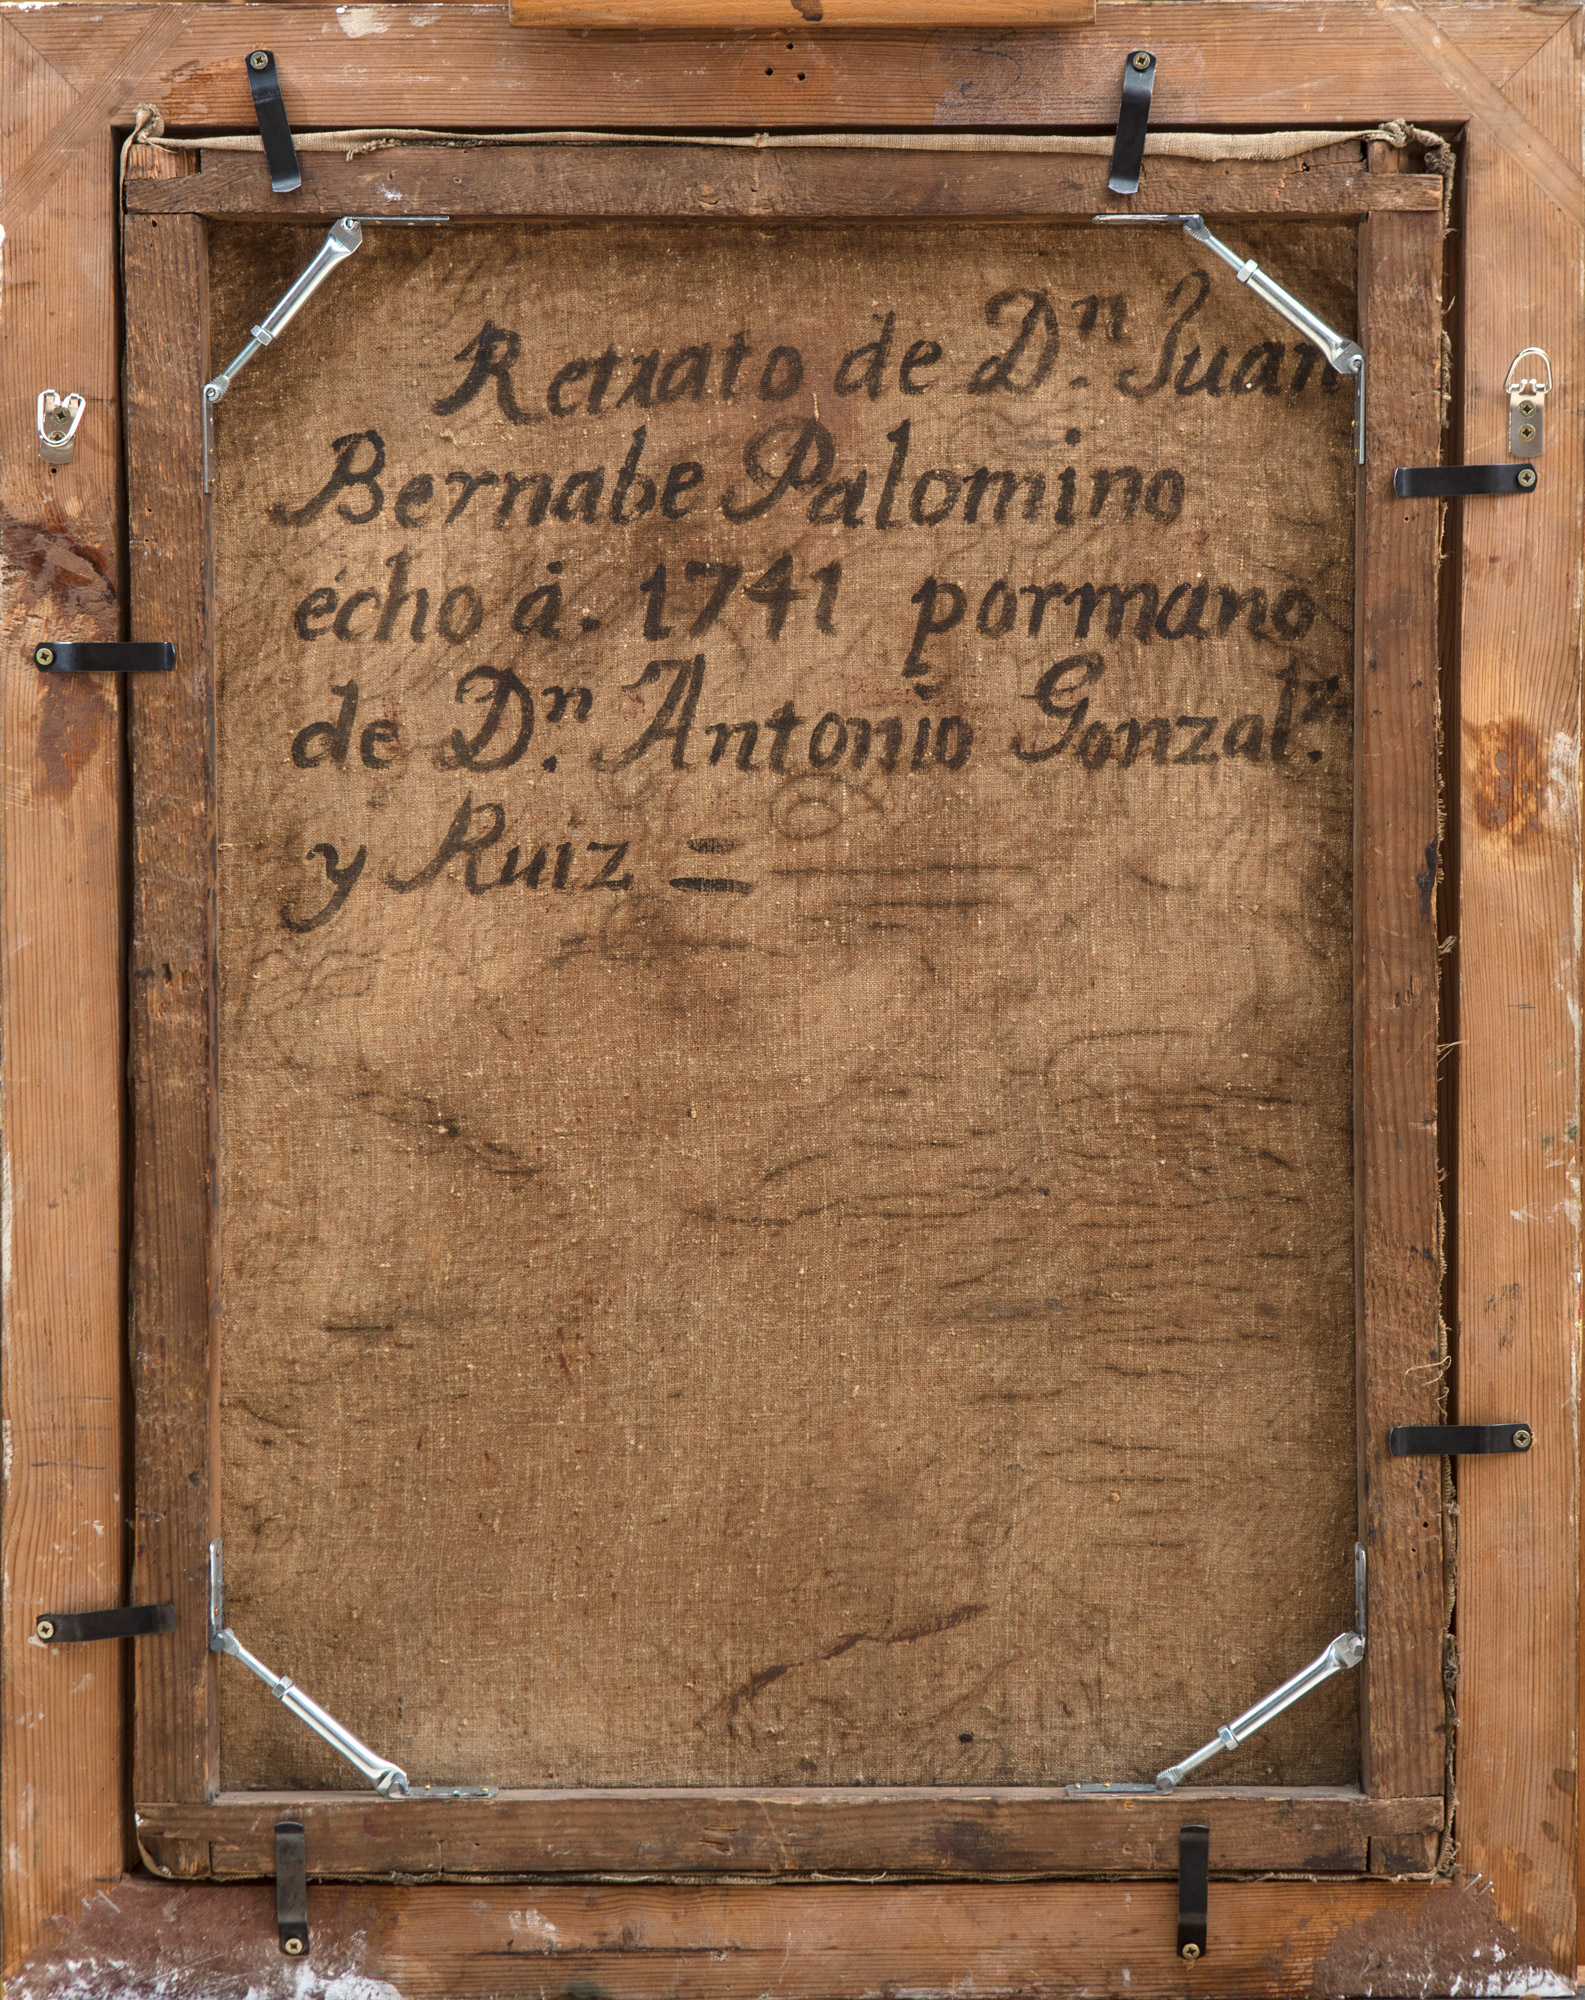 Retrato de Dⁿ. Juan
Bernabe Palomino
écho á. 1741 pormano
de Dⁿ. Antonio Gonzalᶻ.
y Ruiz =